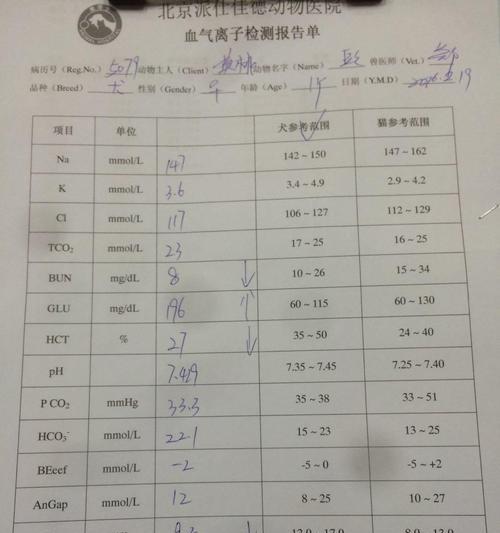 北京派仕佳德动物医院
血气离子检测报告单
病历号 (Reg.No.) 5079 动物主人 (Client) 动物名字 (Name) 兽医师 (Vet.)
品种 (Breed) 犬 性别 (Gender) ♀ 年龄 (Age) 日期 (Y.M.D) 19
项目 单位 犬参考范围 猫参考范围
Na mmol/L 147 142~150 147~162
K mmol/L 3.6 3.4~4.9 2.9~4.2
Cl mmol/L 117 106~127 112~129
TCO₂ mmol/L 23 17~25 16~25
BUN mg/dL 8 ↓ 10~26 15~34
GLU mg/dL 196 ↑ 60~115 60~130
HCT % 27 ↓ 35~50 24~40
pH 7.429 7.35~7.45 7.25~7.40
P CO₂ mmHg 33.3 35~38 33~51
HCO₃⁻ mmol/L 22.1 15~23 13~25
BEecf mmol/L -2 -5~0 -5~+2
AnGap mmol/L 12 8~25 10~27